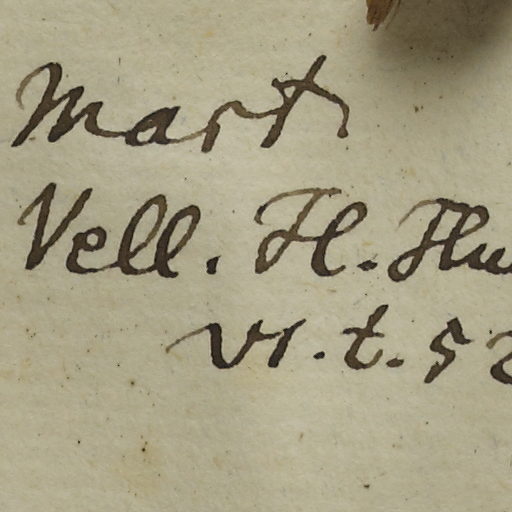 Mart
Vell. Fl. Flu
VI. t. 52